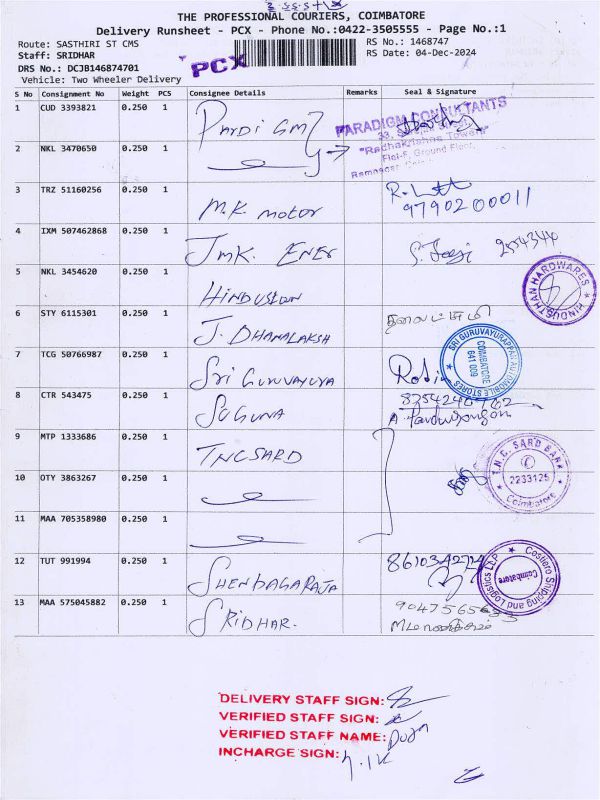 THE PROFESSIONAL COURIERS, COIMBATORE
Delivery Runsheet - PCX - Phone No.:0422-3505555 - Page No.:1
Route: SASTHIRI ST CMS RS No.: 1468747
Staff: SRIDHAR RS Date: 04-Dec-2024
DRS No.: DCJB146874701
PCX
Vehicle: Two Wheeler Delivery
S No Consignment No Weight PCS Consignee Details Remarks Seal & Signature
1 CUD 3393821 0.250 1 PARDIGM
PARADIGM CONSULTANTS
"Radhakrishna Towers"
Flat-F, Ground Floor,
2 NKL 3470650 0.250 1
3 TRZ 51160256 0.250 1 M.K. MOTOR
9790200011
4 IXM 507462868 0.250 1 JMK. ENER
5 NKL 3454620 0.250 1 HINDUSTAN
HINDUSTHAN HARDWARES
6 STY 6115301 0.250 1 J. DHANALAKSH
7 TCG 50766987 0.250 1 SRI GURUVAYURA
SRI GURUVAYURAPPAN AUTOMOBILE STORES
COIMBATORE
641 009
8 CTR 543475 0.250 1 SUGUNA
9 MTP 1333686 0.250 1 TNCSARD
T.N.C. SARD BANK
2233125
Coimbatore
10 OTY 3863267 0.250 1
11 MAA 705358980 0.250 1
12 TUT 991994 0.250 1 SHENDAGARAJA
Costiero Shipping and Logistics LLP
Coimbatore
13 MAA 575045882 0.250 1 SRIDHAR.
DELIVERY STAFF SIGN:
VERIFIED STAFF SIGN:
VERIFIED STAFF NAME:
INCHARGE SIGN: